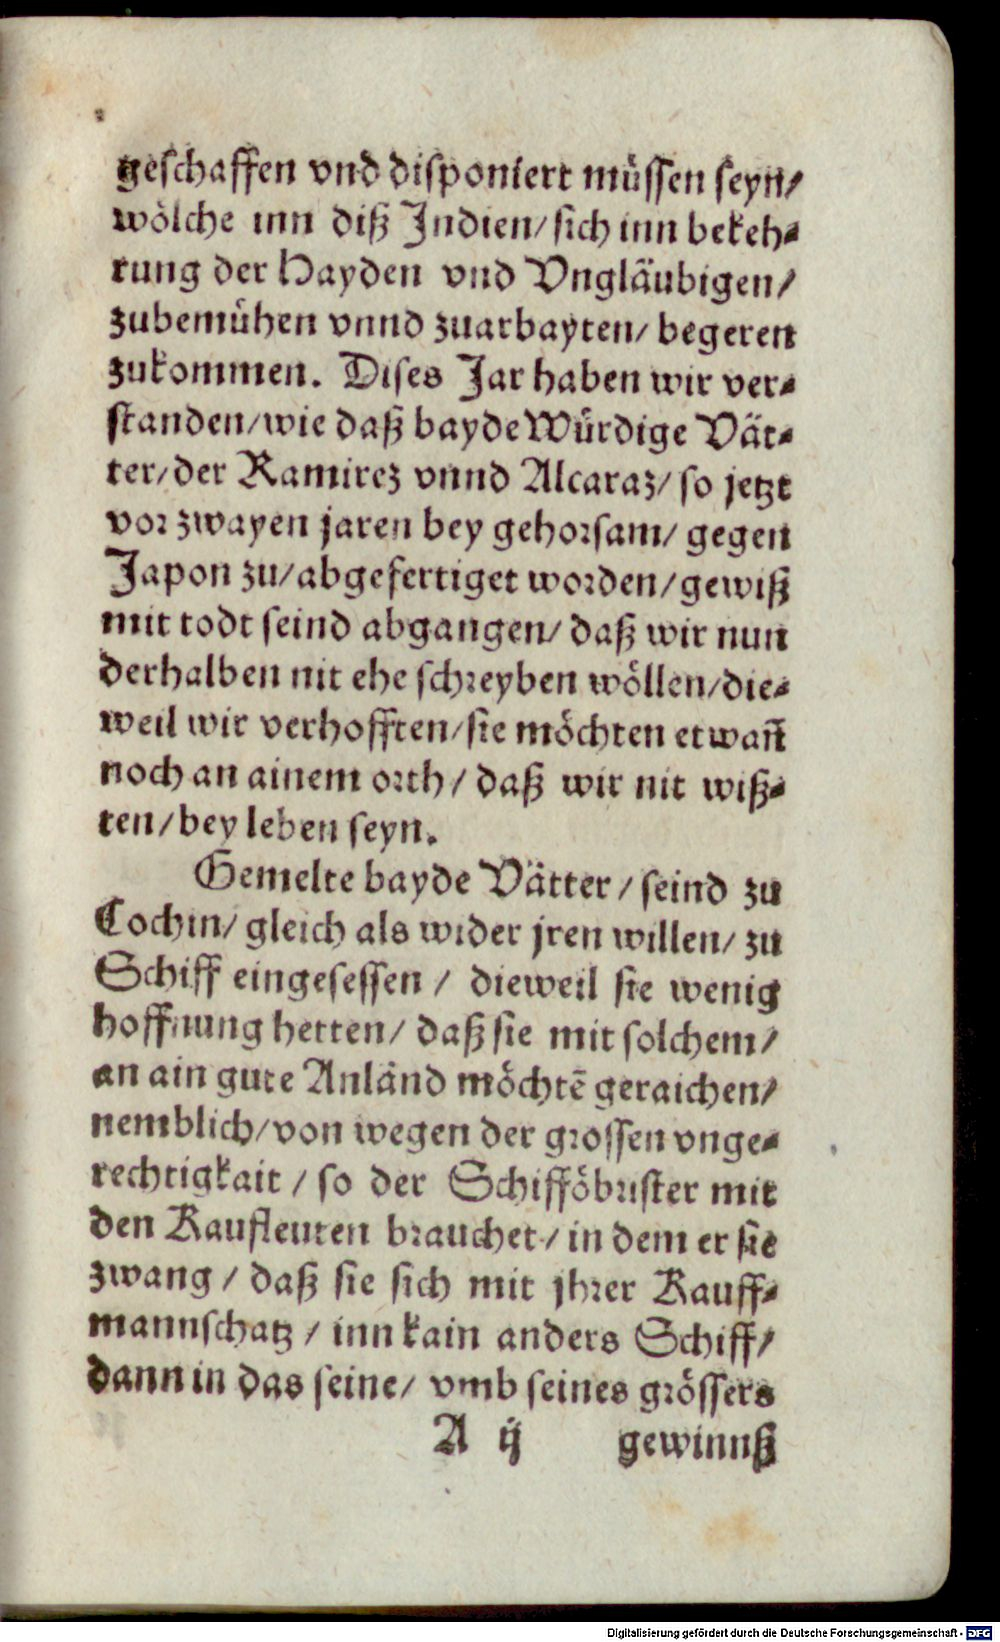 geschaffen vnd disponiert müssen seyn/
wölche inn diß Indien/ sich inn bekeh-
rung der Hayden vnd Vngläubigen/
zubemühen vnnd zuarbayten/ begeren
zukommen. Dises Jar haben wir ver-
standen/ wie daß bayde Würdige Vät-
ter/ der Ramirez vnnd Alcaraz/ so jetzt
vor zwayen jaren bey gehorsam/ gegen
Japon zu/ abgefertiget worden/ gewiß
mit todt seind abgangen/ daß wir nun
derhalben nit ehe schreyben wöllen/ die-
weil wir verhofften/ sie möchten etwañ
noch an ainem orth/ daß wir nit wiß-
ten/ bey leben seyn.
Gemelte bayde Vätter/ seind zu
Cochin/ gleich als wider jren willen/ zu
Schiff eingesessen/ dieweil sie wenig
hoffnung hetten/ daß sie mit solchem/
an ain gute Anländ möchtē geraichen/
nemblich/ von wegen der grossen vnge-
rechtigkait/ so der Schifföbrister mit
den Kaufleuten brauchet/ in dem er sie
zwang/ daß sie sich mit jhrer Kauff-
mannschatz/ inn kain anders Schiff/
dann in das seine/ vmb seines grössers
A ij gewinnß
Digitalisierung gefördert durch die Deutsche Forschungsgemeinschaft - DFG